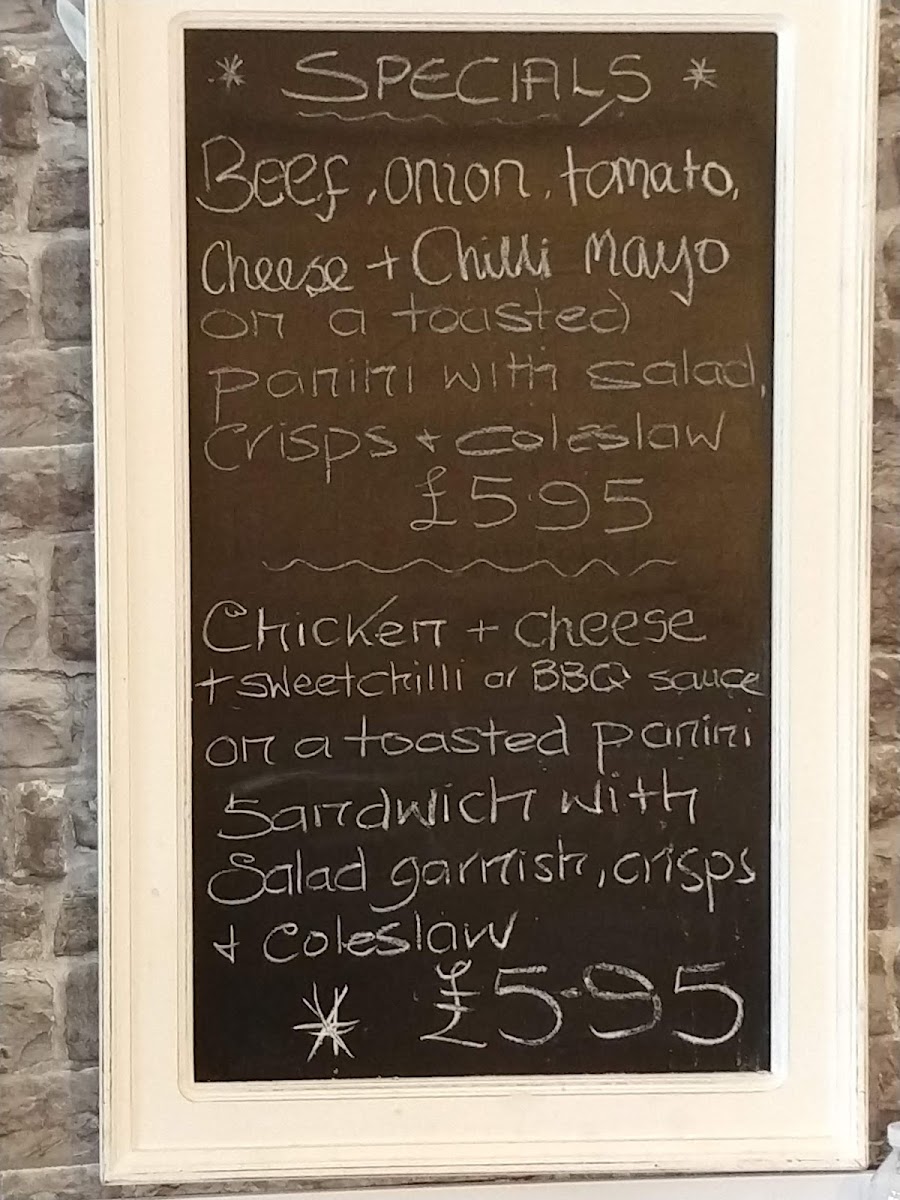 * SPECIALS *
Beef, onion, tomato,
Cheese + Chilli Mayo
on a toasted
panini with salad,
crisps + coleslaw
£5.95
Chicken + cheese
+ sweetchilli or BBQ sauce
on a toasted panini
Sandwich with
Salad garnish, crisps
+ coleslaw
* £5.95